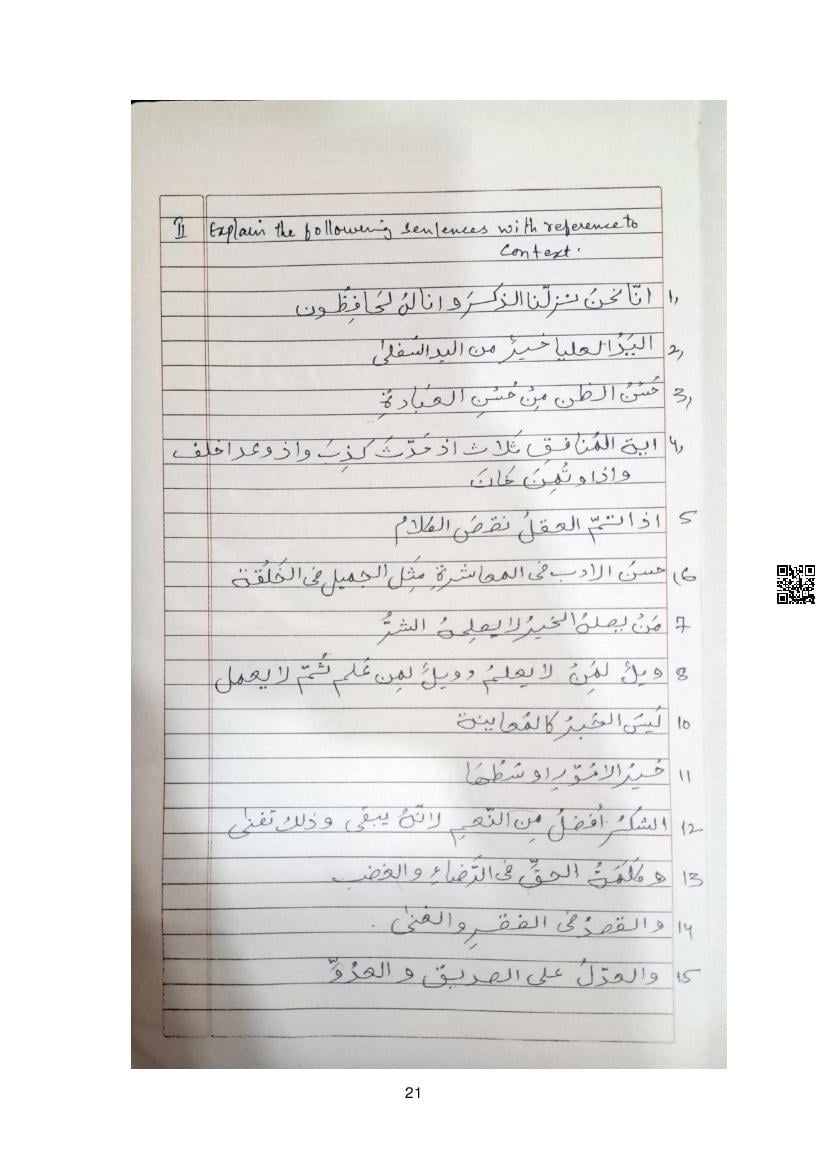 II Explain the following sentences with reference to
context.
1, انّا نحنَ نزلّنا الذكرَ و انا لهُ لحَافِظُون
2, اليَدُ العليا خيرٌ من اليد السّفلىٰ
3, حُسْنُ الظن مِنْ حُسْنِ العبَادةِ
4, اية المُنافِقِ ثَلاث اذ حَدّثَ كذِبَ واذ وعد اخلف
واذا وتُمِنَ خَانَ
5 اذا تتمّ العقلُ نقصَ الكلامُ
16 حسنُ الادب فى المعاشرةِ مثل الجميل فى الخَلْقة
7 مَنْ يصلهُ الخيرُ لا يصلِحهُ الشرُّ
8 ويلٌ لمَنْ لا يعلمُ وويلٌ لمِن عَلم ثُمّ لا يعمل
10 لَيسَ الخَبرُ كالمُعاينة
11 خيرُ الامُوْرِ اوسَطُهَا
12 الشكرُ أفضلُ مِن النّعمِ لانّهُ يبقى وذلك تفنىٰ
13 و كَلمَةُ الحقِّ فى الرّضاءِ والغضب
14 والقصدُ فى الفقرِ والغنىٰ.
15 والعدلُ على الصديق و العدُوِّ
21